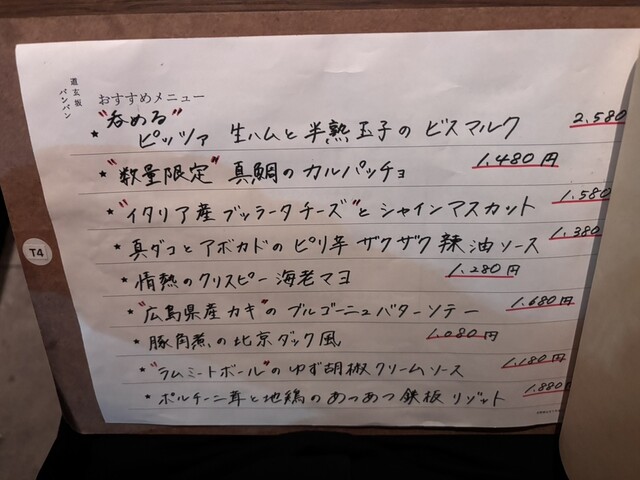 道玄坂
バンバン
おすすめメニュー
★ "呑める"
ピッツァ 生ハムと半熟玉子のビスマルク 2,580
★ "数量限定" 真鯛のカルパッチョ 1,480円
★ "イタリア産ブッラータチーズ"とシャインマスカット 1,580
★ 真ダコとアボカドのピリ辛ザクザク辣油ソース 1,380
★ 情熱のクリスピー海老マヨ 1,280円
★ "広島県産カキ"のブルゴーニュバターソテー 1,680円
★ 豚角煮の北京ダック風 1,080円
★ "ラムミートボール"のゆず胡椒クリームソース 1,180円
★ ポルチーニ茸と地鶏のあつあつ鉄板リゾット 1,880
T4